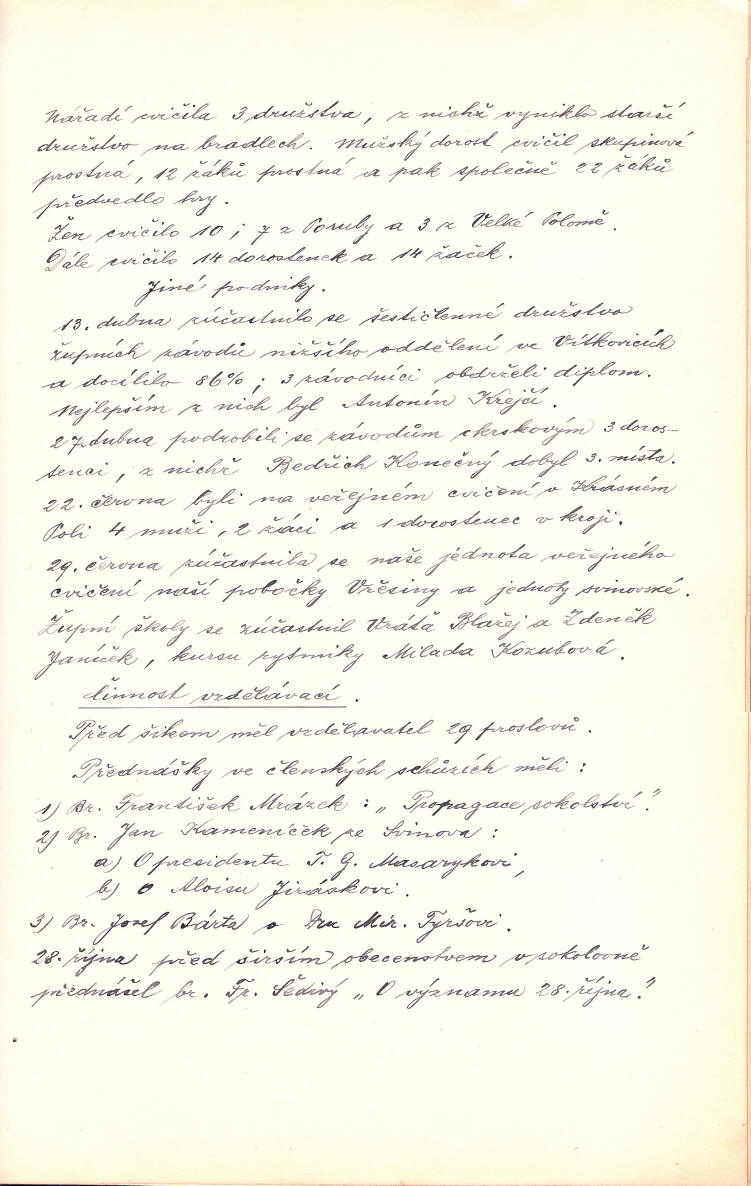 Nářadí cvičila 3 družstva, z nichž vyniklo starší
družstvo na bradlech. Mužský dorost cvičil skupinová
prostná, 12 žáků prostná a pak společně 22 žáků
předvedlo hry.
Žen cvičilo 10; 7 z Poruby a 3 z Velké Polomě.
Dále cvičilo 14 dorostenek a 14 žaček.
Jiné podniky.
13. dubna zúčastnilo se šestičlenné družstvo
župních závodů nižšího oddělení ve Vítkovicích
a docílilo 86%; 3 závodníci obdrželi diplom.
Nejlepším z nich byl Antonín Krejčí.
27. dubna podrobili se závodům okrskovým 3 doros-
tenci, z nichž Bedřich Konečný dobyl 3. místa.
22. června byli na veřejném cvičení v Krásném
Poli 4 muži, 2 žáci a 1 dorostenec v kroji.
29. června zúčastnila se naše jednota veřejného
cvičení naší pobočky Vřesiny a jednoty svinovské.
Župní školy se zúčastnil Vráťa Blažej a Zdeněk
Janíček, kursu rytmiky Milada Kozubová.
Činnost vzdělávací.
Před šikem měl vzdělavatel 29 proslovů.
Přednášky ve členských schůzích měli:
1) Br. František Mrázek: „Propagace sokolství".
2) Br. Jan Kameníček ze Svinova:
a) O presidentu T. G. Masarykovi,
b) o Aloisu Jiráskovi.
3) Br. Josef Bárta o Dru Mir. Tyršovi.
28. října před širším obecenstvem v sokolovně
přednášel br. Fr. Šedivý „O významu 28. října."